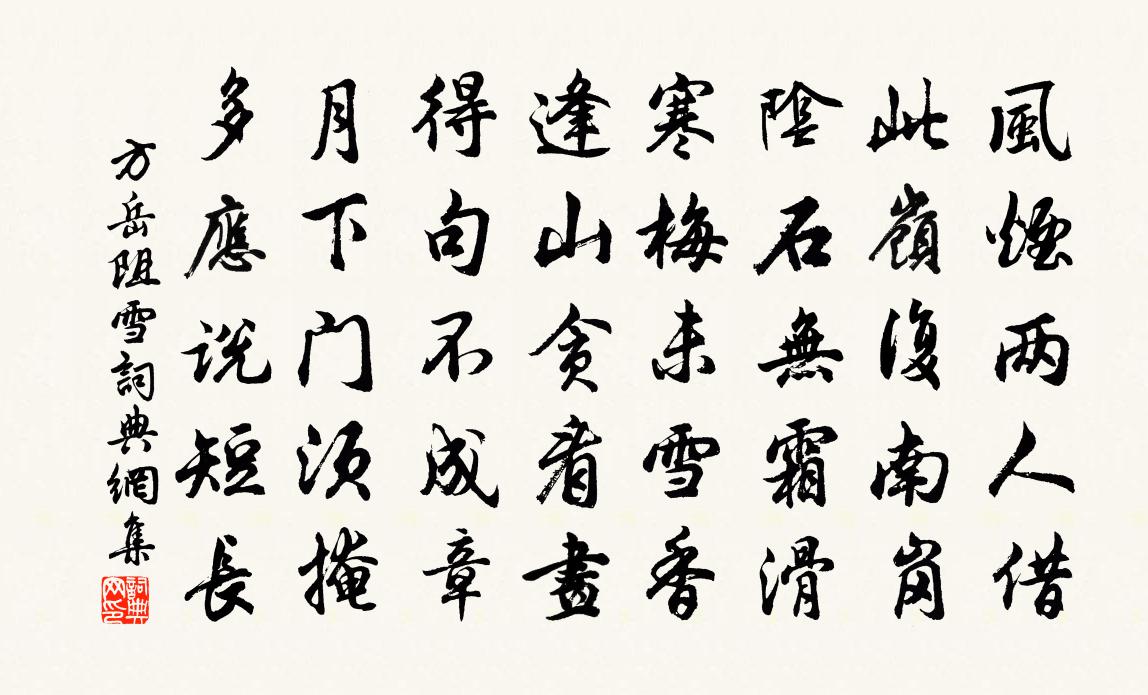 風煙两人借
此嶺復南崗
陰石無霜滑
寒梅未雪香
逢山貪看畫
得句不成章
月下门須掩
多應說短長
方岳阻雪詞典網集
詞典网印